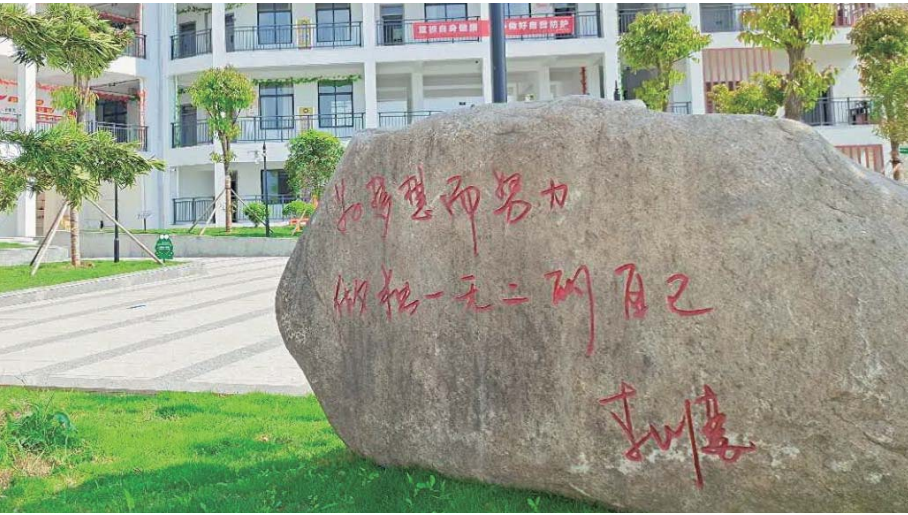 重视自身健康 做好自我防护
为梦想而努力
做独一无二的自己